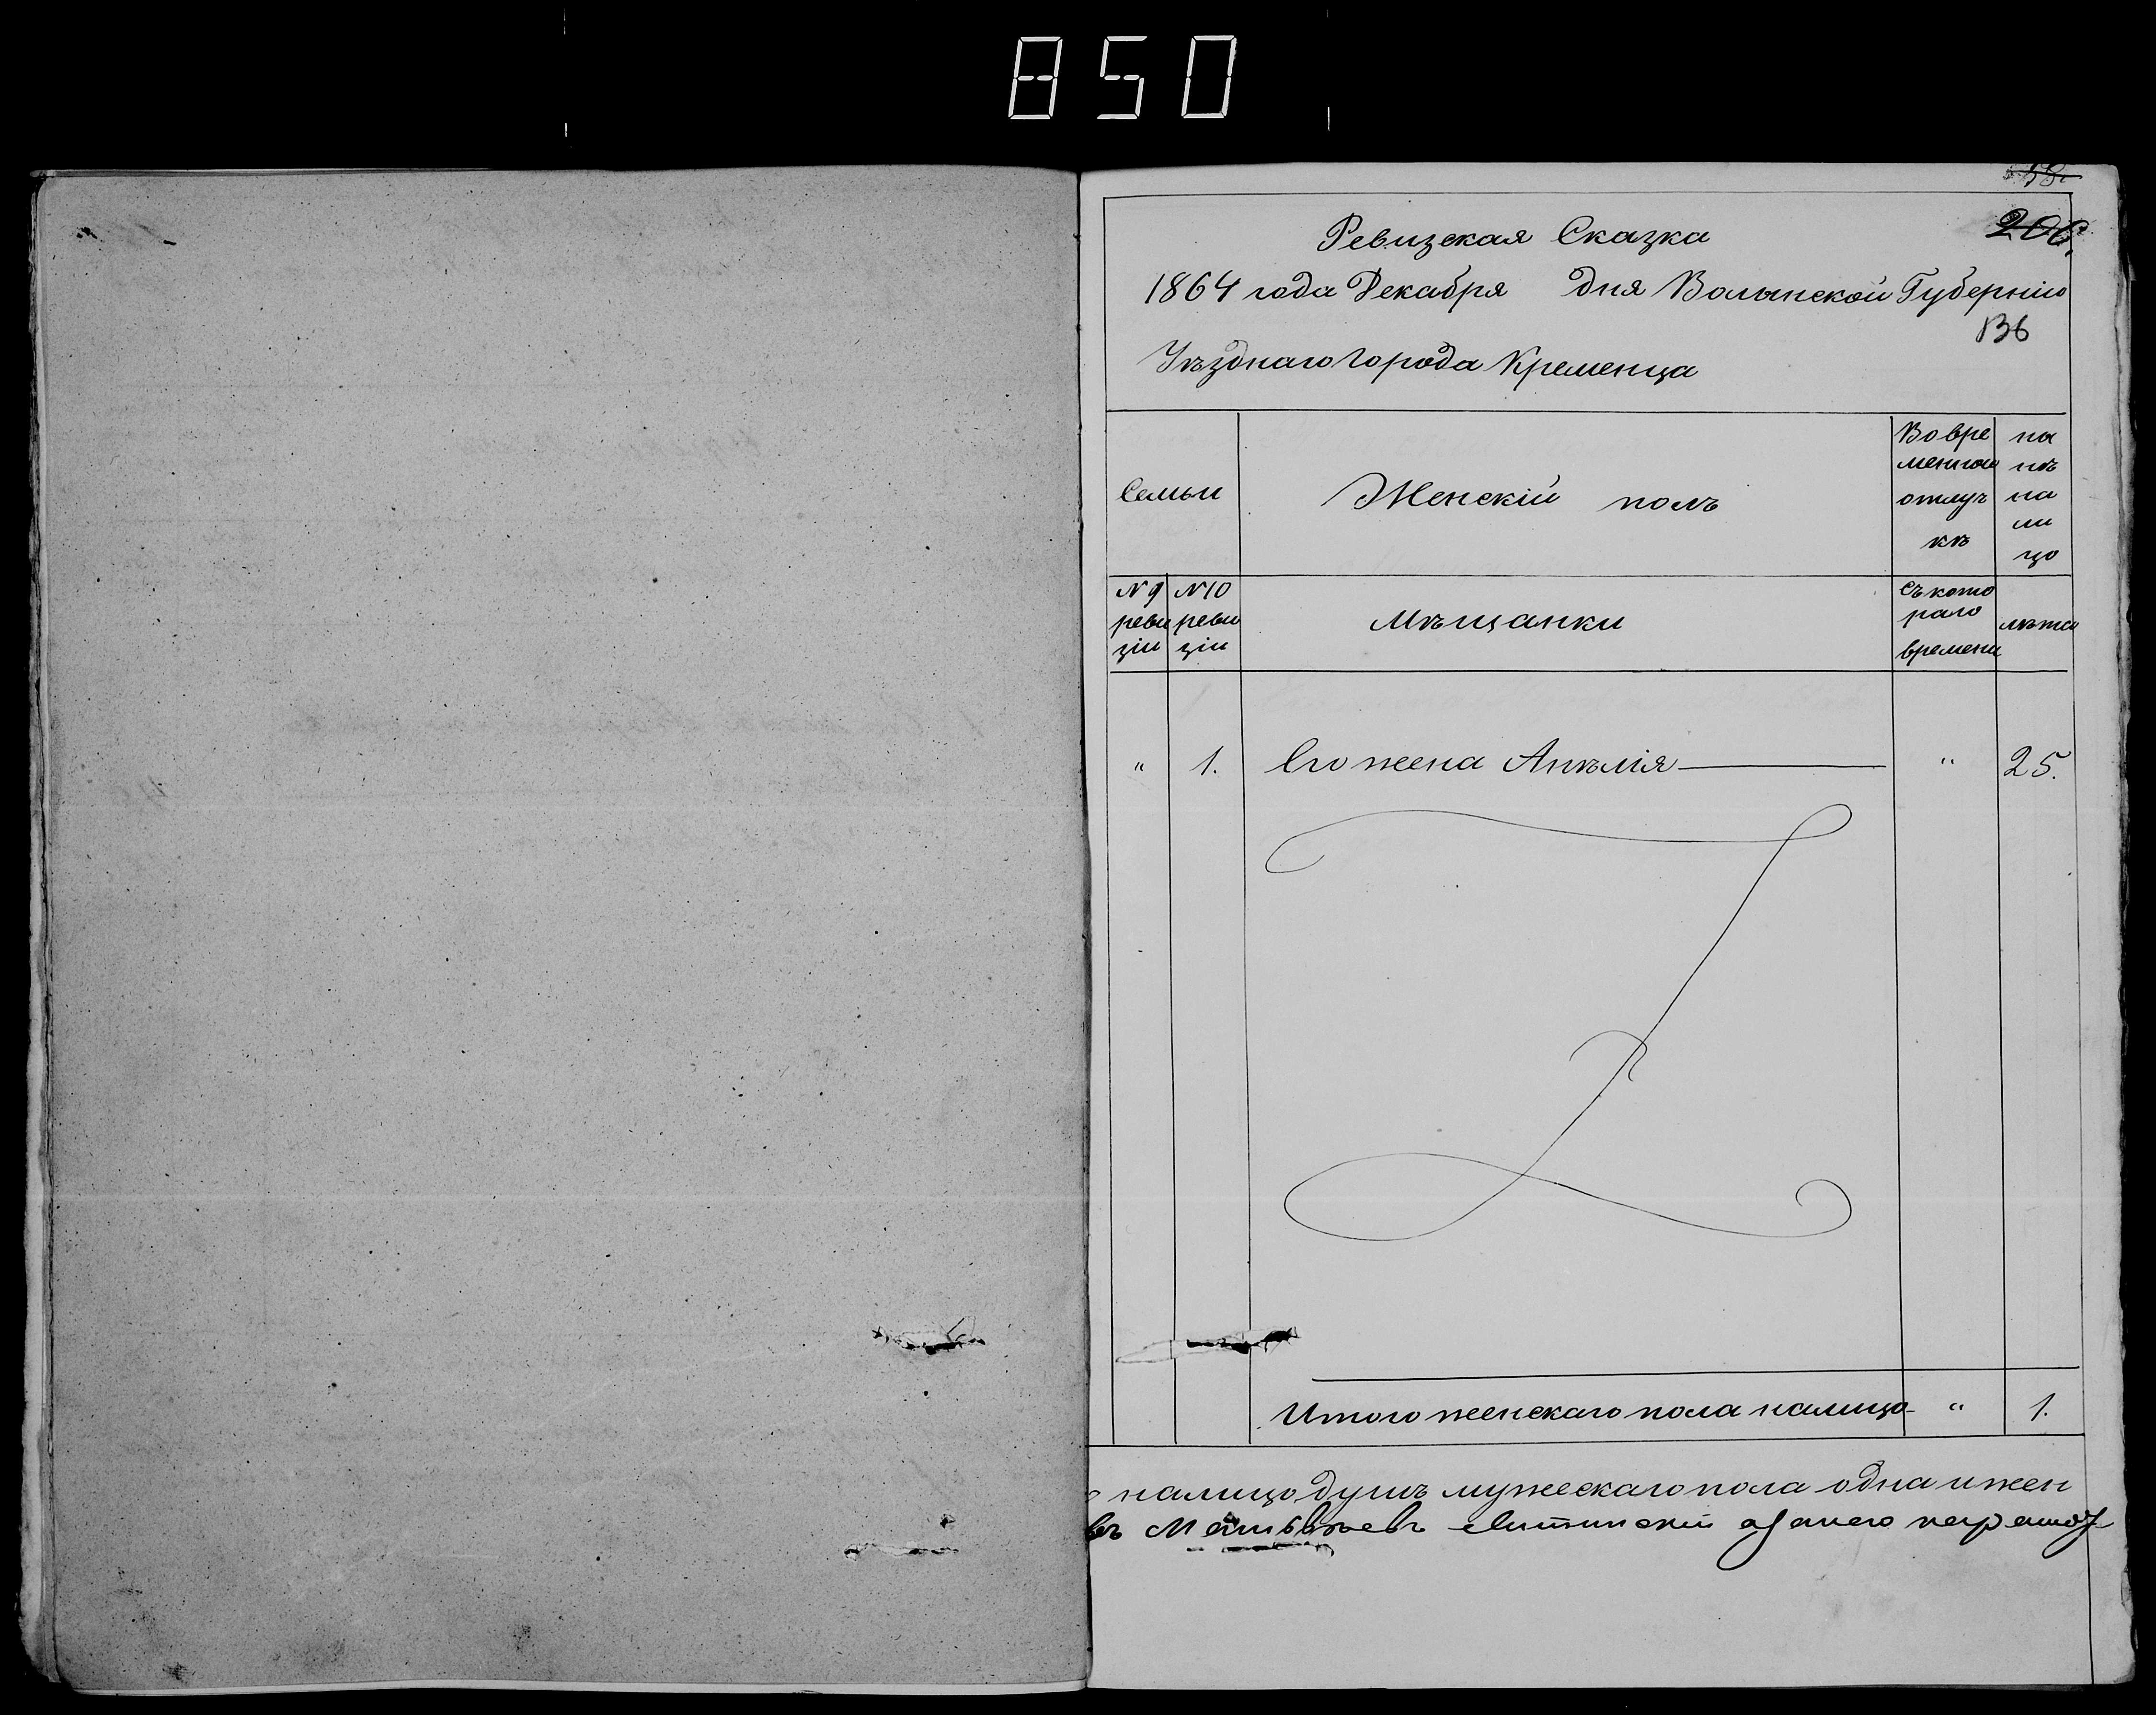 850
206.
Ревизская Сказка
1864 года Декабря дня Волынской Губернiи
136
Уѣзднаго города Кременца
Семьи
Женскiй полъ
Во вре
менной
отлуч
кѣ
на
ли
цо
№ 9
реви
зiи
№ 10
реви
зiи
Мѣщанки
Съ кото
раго
времени
лѣта
" 1. Его жена Анѣлiя " 25.
Итого женскаго пола налицо " 1.
налицо душъ мужескаго пола одна и жен
Матвѣевъ